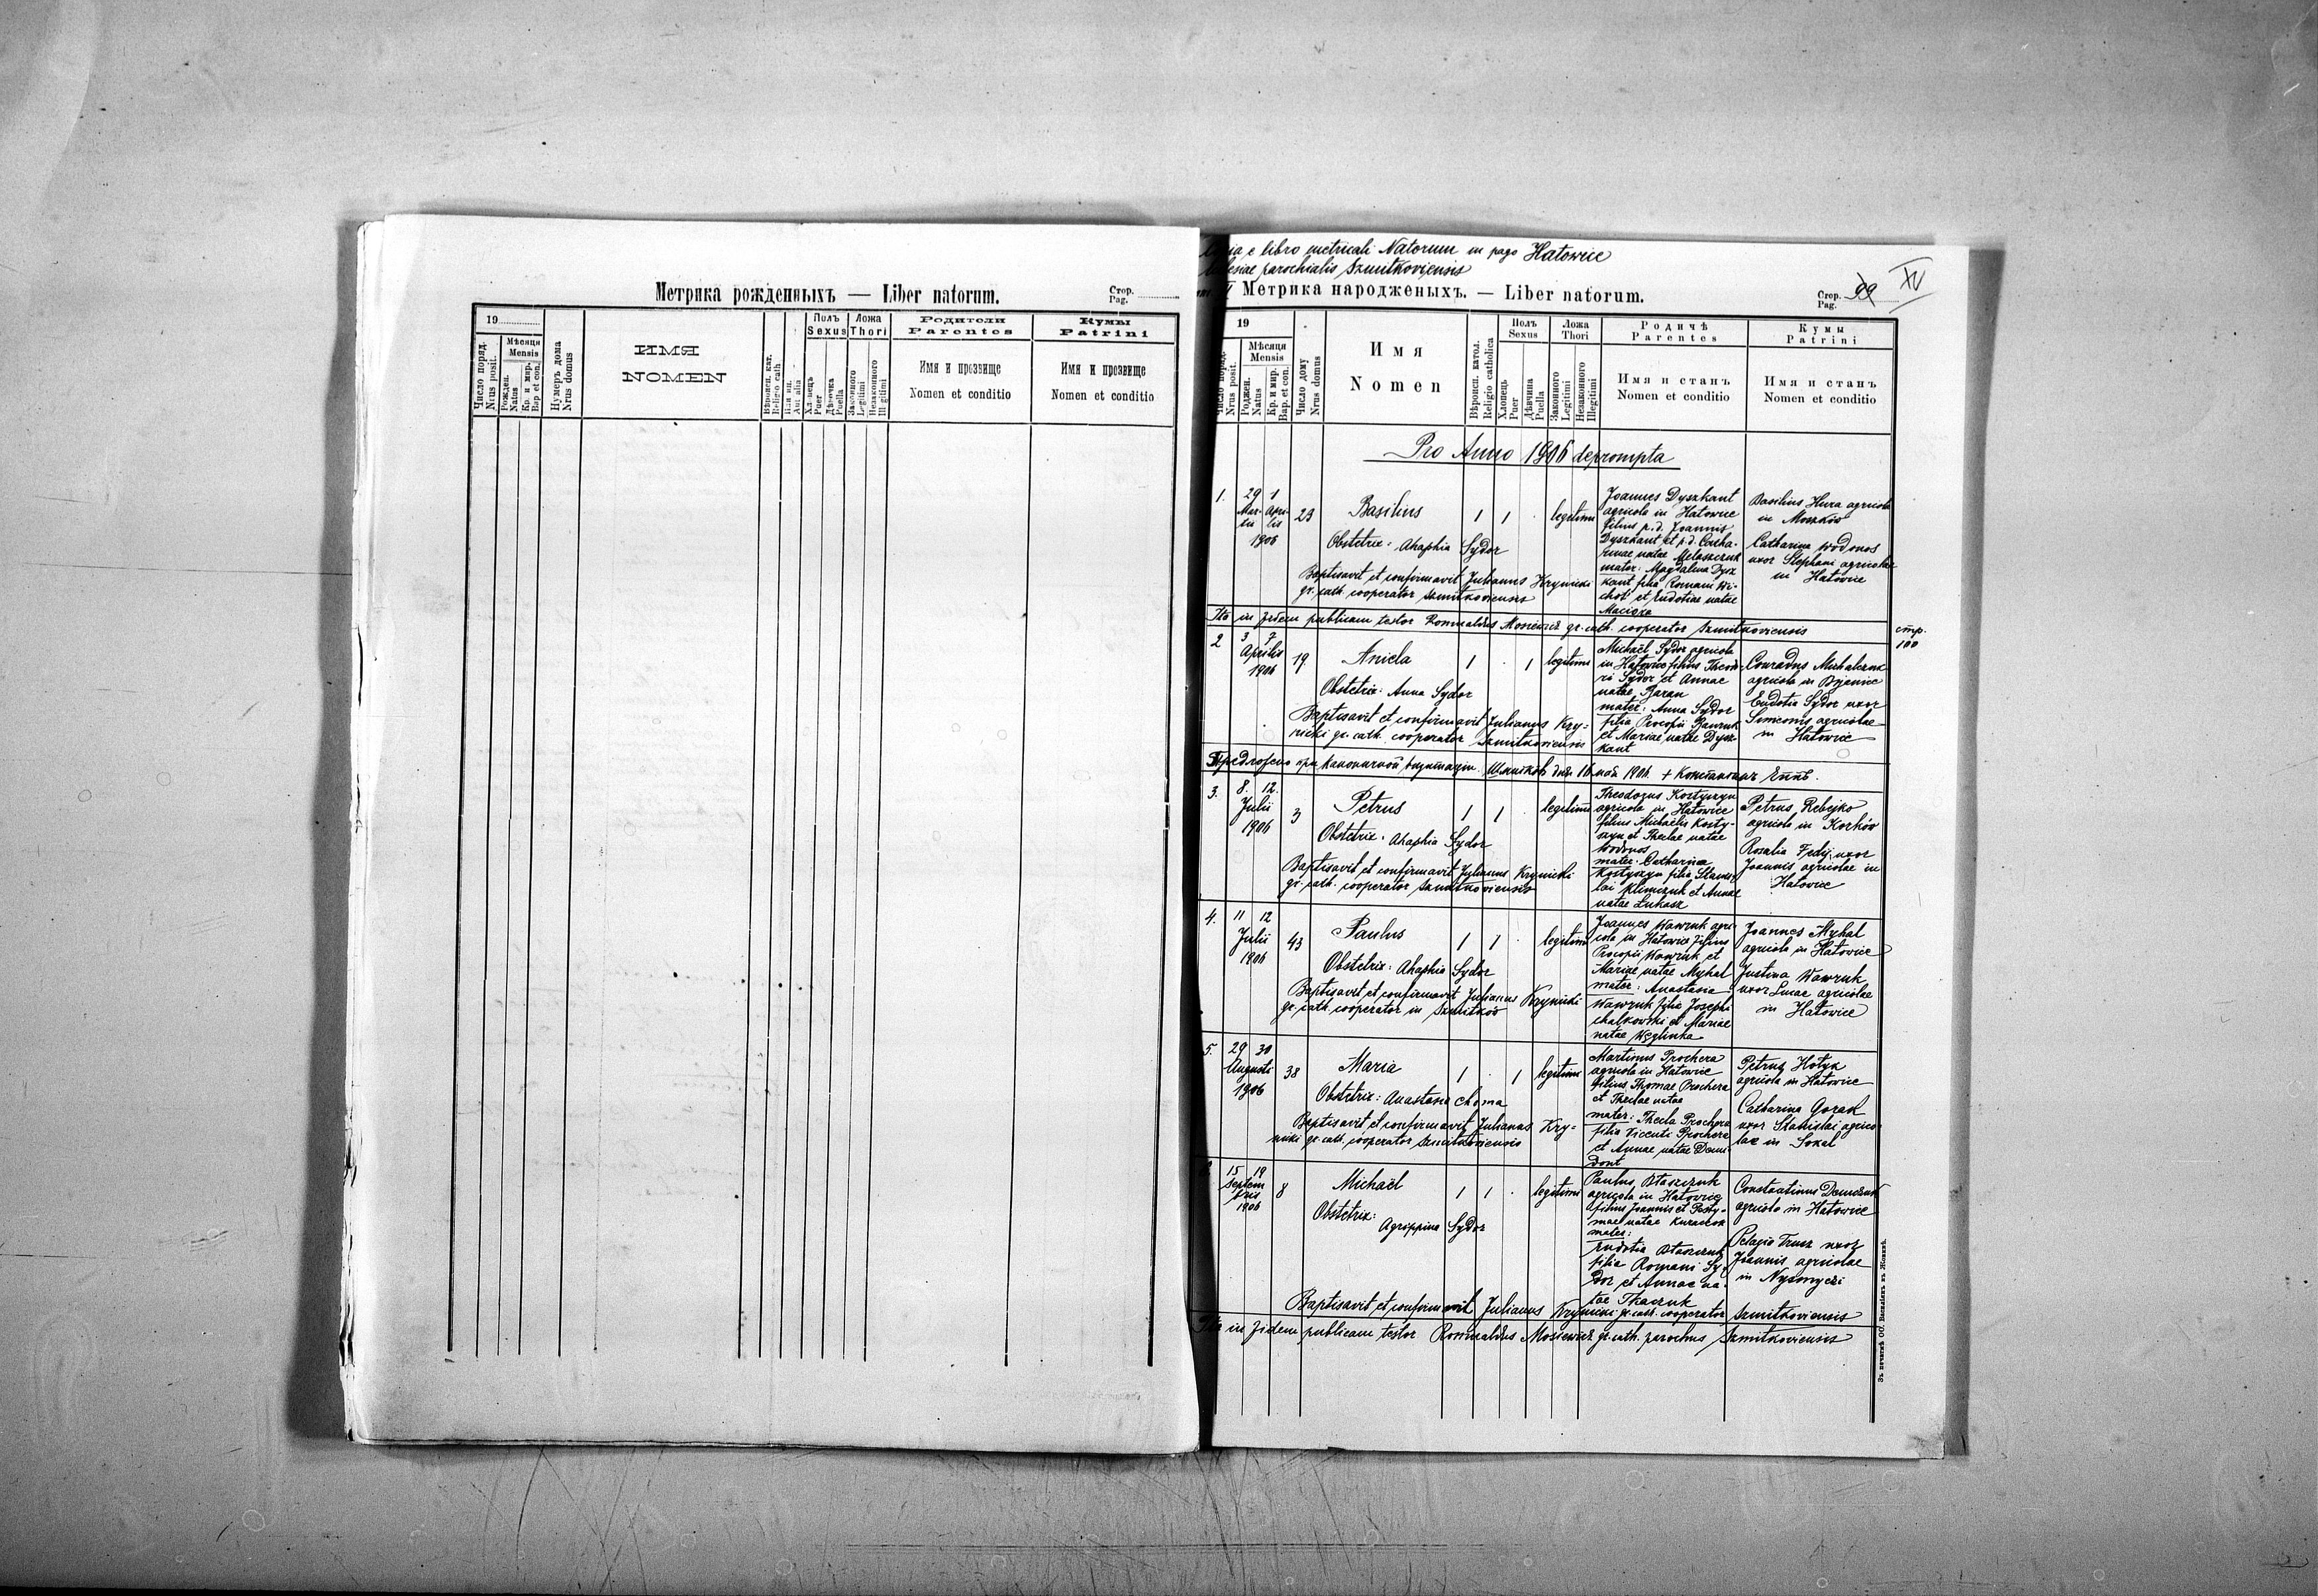 Метрика рожденныхъ — Liber natorum.
Стор.
Pag.
19
Число поряд.
Nrus posit.
Мѣсяця
Mensis
Рожден.
Natus
Кр. и мир.
Bap et con.
Нумеръ дома
Nrus domus
ИМЯ
NOMEN
Вѣроисп. кат.
Religio cath
Полъ
Sexus
Хлопецъ
Puer
Дѣвочка
Puella
Ложа
Thori
Законного
Legitimi
Незаконного
Illegitimi
Родители
Parentes
Имя и прозвище
Nomen et conditio
Кумы
Patrini
Имя и прозвище
Nomen et conditio
e libro metricali Natorum in pago Hatowice
parochialis Szmitkoviensis
Метрика народженыхъ. — Liber natorum.
Стор.
Pag.
99
XV
19
Nrus posit.
Мѣсяця
Mensis
Рожден.
Natus
Кр. и мир.
Bap. et con.
Число дому
Nrus domus
Имя
Nomen
Вѣроисп. катол.
Religio catholica
Полъ
Sexus
Хлопець
Puer
Дѣвчина
Puella
Ложа
Thori
Законного
Legitimi
Незаконного
Illegitimi
Родичѣ
Parentes
Имя и станъ
Nomen et conditio
Кумы
Patrini
Имя и станъ
Nomen et conditio
Pro Anno 1906 deprompta
1.
29 1
Mar- Apri-
tii lis
1906
23
Basilius
1 1 .
legitimi
Obstetrix: Ahaphia Sydor
Baptisavit et confirmavit Julianus Krynicki
gr. cath. cooperator Szmitkoviensis
Joannes Dyszkant
agricola in Hatowice
filius p. d. Joannis
Dyszkant et p. d. Catha-
rinae natae Melaszczuk
mater: Magdalena Dysz
kant filia Romani Wi-
chot et Eudotiae natae
Basilius Hura agricola
in Moszków
Catharina Wodonos
uxor Stephani agricolae
in Hatowice
Ita in fidem publicam testor Romualdus Mosiewicz gr. cath. cooperator Szmitkoviensis
стр.
100
2
3 7
Aprilis
1906
19
Aniela
1 . 1
legitimi
Obstetrix: Anna Sydor
Baptisavit et confirmavit Julianus Kry-
nicki gr. cath. cooperator Szmitkoviensis
Michaël Sydor agricola
in Hatowice filius Theodo-
ri Sydor et Annae
natae Baran
mater: Anna Sydor
filia Procopii
et Mariae natae Dysz
kant
Conradus Michalczuk
agricola in
Eudotia Sydor uxor
Simeonis agricolae
in Hatowice
Предложено при каноничной визитации. Шмитковъ дня 16 мая 1906. + Константинъ Епп.
3.
8. 12.
Julii
1906
3
Petrus
1 1 .
legitimi
Obstetrix: Ahaphia Sydor
Baptisavit et confirmavit Julianus Krynicki
gr. cath. cooperator Szmitkoviensis
Theodorus Kostyszyn
agricola in Hatowice
filius Michaëlis Kosty-
szyn et Theclae natae
Wodonos
mater: Catharina
Kostyszyn filia Stanis-
lai Klimczuk et Annae
natae Lukasz
Petrus Rebejko
agricola in Korków
Rosalia Fedij uxor
Joannis agricolae in
Hatowice
4.
11 12
Julii
1906
43
Paulus
1 1 .
legitimi
Obstetrix: Ahaphia Sydor
Baptisavit et confirmavit Julianus Krynicki
gr. cath. cooperator in Szmitków
Joannes Wawruk agri-
cola in Hatowice filius
Procopii Wawruk et
Mariae natae Myhal
mater: Anastasia
Wawruk filia Josephi
Chalkowski et Mariae
natae Węglinka
Joannes Myhal
agricola in Hatowice
Justina Wawruk
uxor Lucae agricolae
in Hatowice
5.
29 30
Augusti
1906
38
Maria
1 . 1
legitimi
Obstetrix: Anastasia Choma
Baptisavit et confirmavit Julianus Kry-
nicki gr. cath. cooperator Szmitkoviensis
Martinus Prochera
agricola in Hatowice
filius Thomae Prochera
et Theclae natae
mater: Thecla Prochera
filia Vicenti Prochera
et Annae natae
Petrus Hotyk
agricola in Hatowice
Catharina Gorak
uxor Stanislai agrico-
lae in Sokal
15 19
Septem
bris
1906
8
Michaël
1 1 .
legitimi
Obstetrix:
Agrippina Sydor
Paulus Ptaszczuk
agricola in Hatowice
filius Joannis et
natae
mater:
Eudotia Ptaszczuk
filia Romani Sy-
dor et Annae na-
tae Tkaczuk
Constantinus Demczuk
agricola in Hatowice
Pelagia Trusz uxor
Joannis agricolae
in Nysmyczi
Baptisavit et confirmavit Julianus Krynicki gr. cath. cooperator Szmitkoviensis
Ita in fidem publicam testor Romualdus Mosiewicz gr. cath. parochus Szmitkoviensis